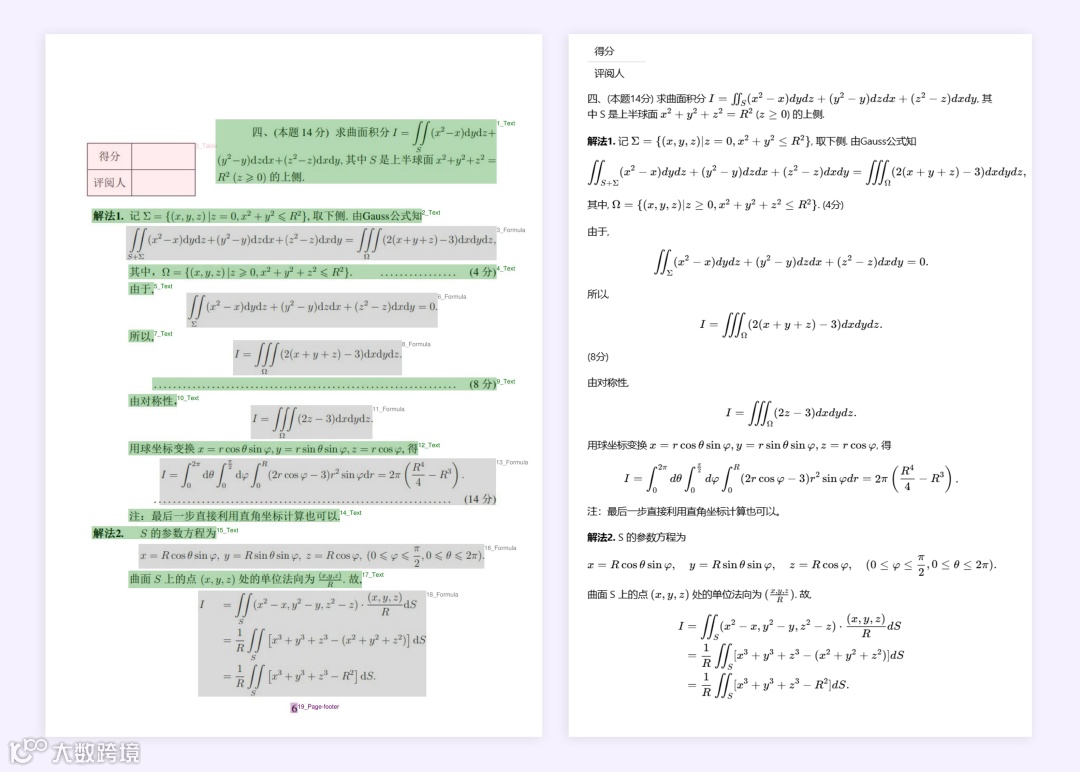 四、(本题 14 分) 求曲面积分 I = ∬_S (x²−x)dydz+
(y²−y)dzdx+(z²−z)dxdy, 其中 S 是上半球面 x²+y²+z² =
R² (z ⩾ 0) 的上侧.
1_Text
得分
评阅人
解法1. 记 Σ = {(x, y, z) | z = 0, x² + y² ⩽ R²}, 取下侧. 由Gauss公式知
2_Text
∬_{S+Σ} (x²−x)dydz+(y²−y)dzdx+(z²−z)dxdy = ∭_Ω (2(x+y+z)−3)dxdydz,
3_Formula
其中, Ω = {(x, y, z) | z ⩾ 0, x² + y² + z² ⩽ R²}. ................ (4 分)
4_Text
由于,
5_Text
∬_Σ (x² − x)dydz + (y² − y)dzdx + (z² − z)dxdy = 0.
6_Formula
所以,
7_Text
I = ∭_Ω (2(x + y + z) − 3)dxdydz.
8_Formula
........................................................ (8 分)
9_Text
由对称性,
10_Text
I = ∭_Ω (2z − 3)dxdydz.
11_Formula
用球坐标变换 x = r cos θ sin φ, y = r sin θ sin φ, z = r cos φ, 得
12_Text
I = ∫_0^{2π} dθ ∫_0^{π/2} dφ ∫_0^R (2r cos φ − 3)r² sin φdr = 2π (R⁴/4 − R³).
13_Formula
........................................................ (14 分)
注: 最后一步直接利用直角坐标计算也可以.
14_Text
解法2. S 的参数方程为
15_Text
x = R cos θ sin φ, y = R sin θ sin φ, z = R cos φ, (0 ⩽ φ ⩽ π/2, 0 ⩽ θ ⩽ 2π).
16_Formula
曲面 S 上的点 (x, y, z) 处的单位法向为 (x,y,z)/R. 故,
17_Text
I = ∬_S (x² − x, y² − y, z² − z) · (x, y, z)/R dS
18_Formula
= 1/R ∬_S [x³ + y³ + z³ − (x² + y² + z²)] dS
= 1/R ∬_S [x³ + y³ + z³ − R²] dS.
6
19_Page-footer
得分
评阅人
四、(本题14分) 求曲面积分 I = ∬_S (x² − x)dydz + (y² − y)dzdx + (z² − z)dxdy, 其
中 S 是上半球面 x² + y² + z² = R² (z ≥ 0) 的上侧.
解法1. 记 Σ = {(x, y, z)|z = 0, x² + y² ≤ R²}, 取下侧. 由Gauss公式知
∬_{S+Σ} (x² − x)dydz + (y² − y)dzdx + (z² − z)dxdy = ∭_Ω (2(x + y + z) − 3)dxdydz,
其中, Ω = {(x, y, z)|z ≥ 0, x² + y² + z² ≤ R²}. (4分)
由于,
∬_Σ (x² − x)dydz + (y² − y)dzdx + (z² − z)dxdy = 0.
所以,
I = ∭_Ω (2(x + y + z) − 3)dxdydz.
(8分)
由对称性,
I = ∭_Ω (2z − 3)dxdydz.
用球坐标变换 x = r cos θ sin φ, y = r sin θ sin φ, z = r cos φ, 得
I = ∫_0^{2π} dθ ∫_0^{π/2} dφ ∫_0^R (2r cos φ − 3)r² sin φdr = 2π (R⁴/4 − R³).
注：最后一步直接利用直角坐标计算也可以。
解法2. S 的参数方程为
x = R cos θ sin φ, y = R sin θ sin φ, z = R cos φ, (0 ≤ φ ≤ π/2, 0 ≤ θ ≤ 2π).
曲面 S 上的点 (x, y, z) 处的单位法向为 (x,y,z/R). 故,
I = ∬_S (x² − x, y² − y, z² − z) · (x, y, z)/R dS
= 1/R ∬_S [x³ + y³ + z³ − (x² + y² + z²)]dS
= 1/R ∬_S [x³ + y³ + z³ − R²]dS.
大数跨境